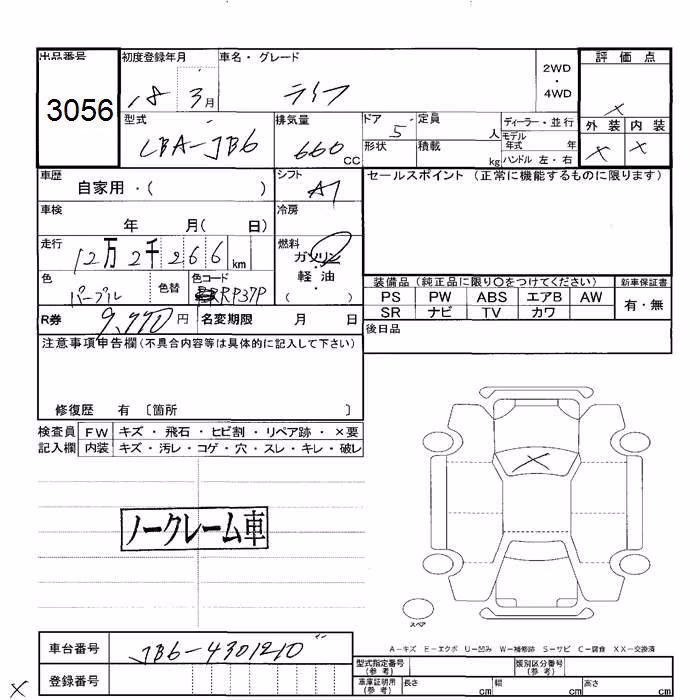 出品番号 初度登録年月 車名・グレード 2WD・4WD 評価点
3056 18 3月 ライフ X
型式 排気量 ドア 定員 人 ディーラー・並行 外装 内装
CBA-JB6 660 CC 5 モデル年式 年 X X
形状 積載 kg ハンドル 左・右
車歴 自家用・( ) シフト AT セールスポイント (正常に機能するものに限ります)
車検 年 月( 日) 冷房
走行 12万2千266km 燃料 ガソリン
軽・油
( )
色 パープル 色替 色コード RP37P
装備品 (純正品に限り○をつけてください) 新車保証書
PS PW ABS エアB AW 有・無
SR ナビ TV カワ
R券 9,770円 名変期限 月 日 後日品
注意事項申告欄(不具合内容等は具体的に記入して下さい)
修復歴 有 〔箇所 〕
検査員 FW キズ・飛石・ヒビ割・リペア跡・×要
記入欄 内装 キズ・汚レ・コゲ・穴・スレ・キレ・破レ
X
ノークレーム車
スペア
A-キズ E-エクボ U-凹み W-補修跡 S-サビ C-腐食 XX-交換済
車台番号 JB6-4301210
型式指定番号(参考) 類別区分番号(参考)
登録番号 車庫証明用(参考) 長さ cm 幅 cm 高さ cm
X